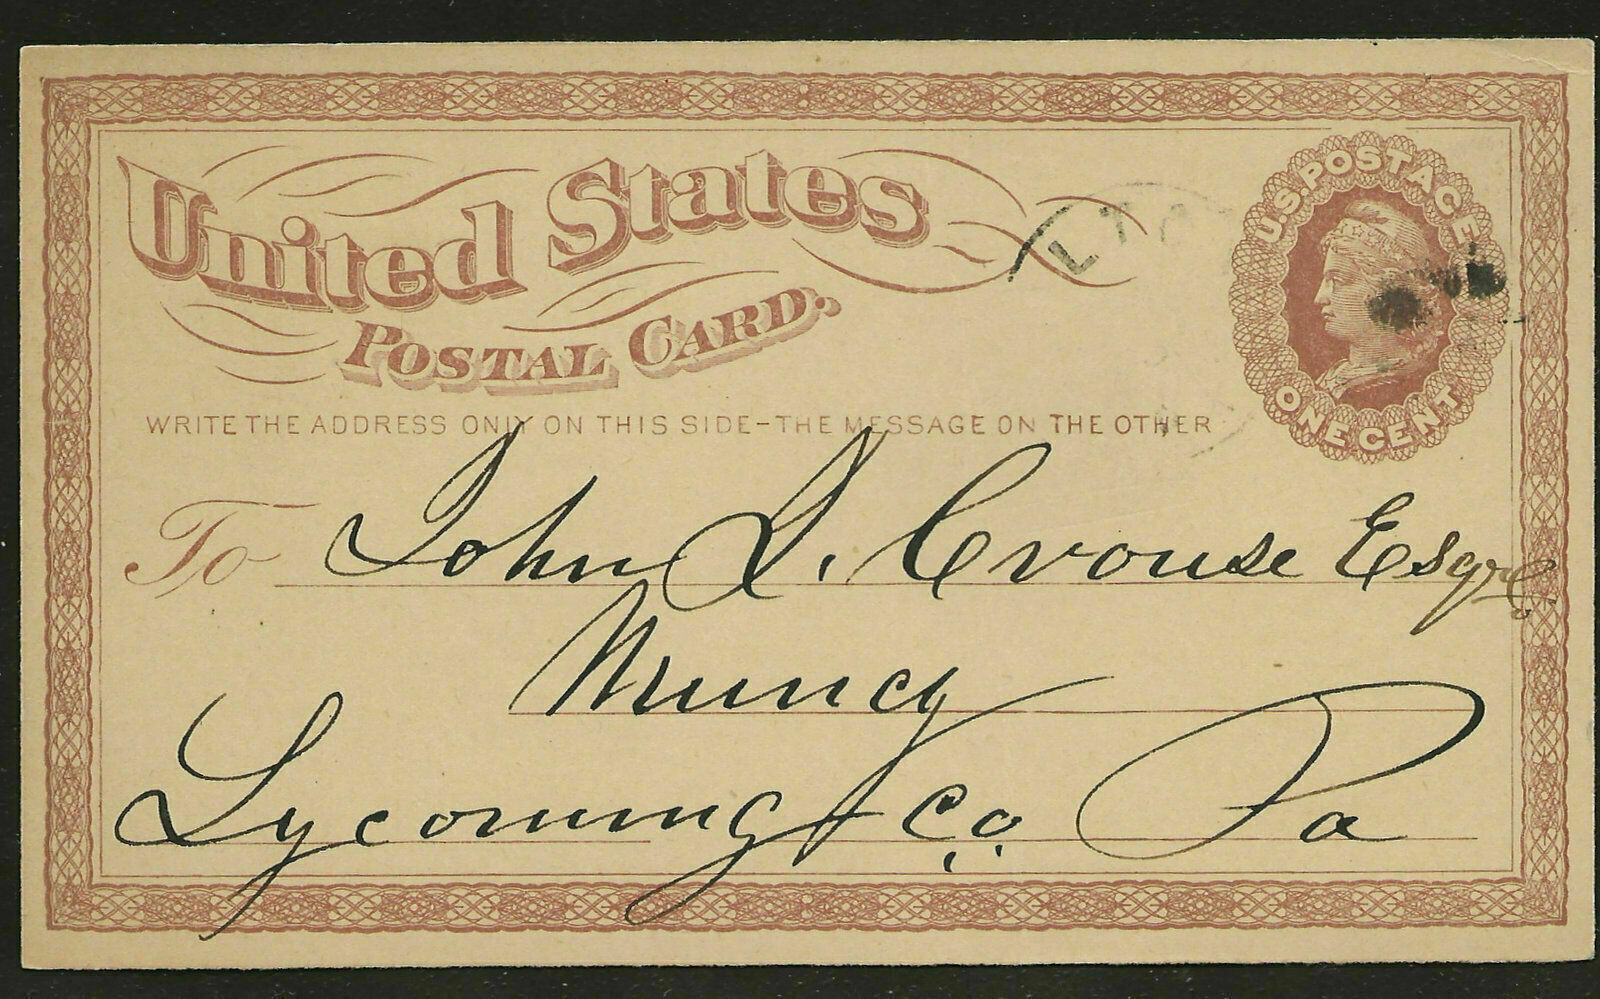 United States
POSTAL CARD.
U.S. POSTAGE
ONE CENT
WRITE THE ADDRESS ONLY ON THIS SIDE-THE MESSAGE ON THE OTHER
To John S. Crouse Esqre
Muncy
Lycoming Co. Pa